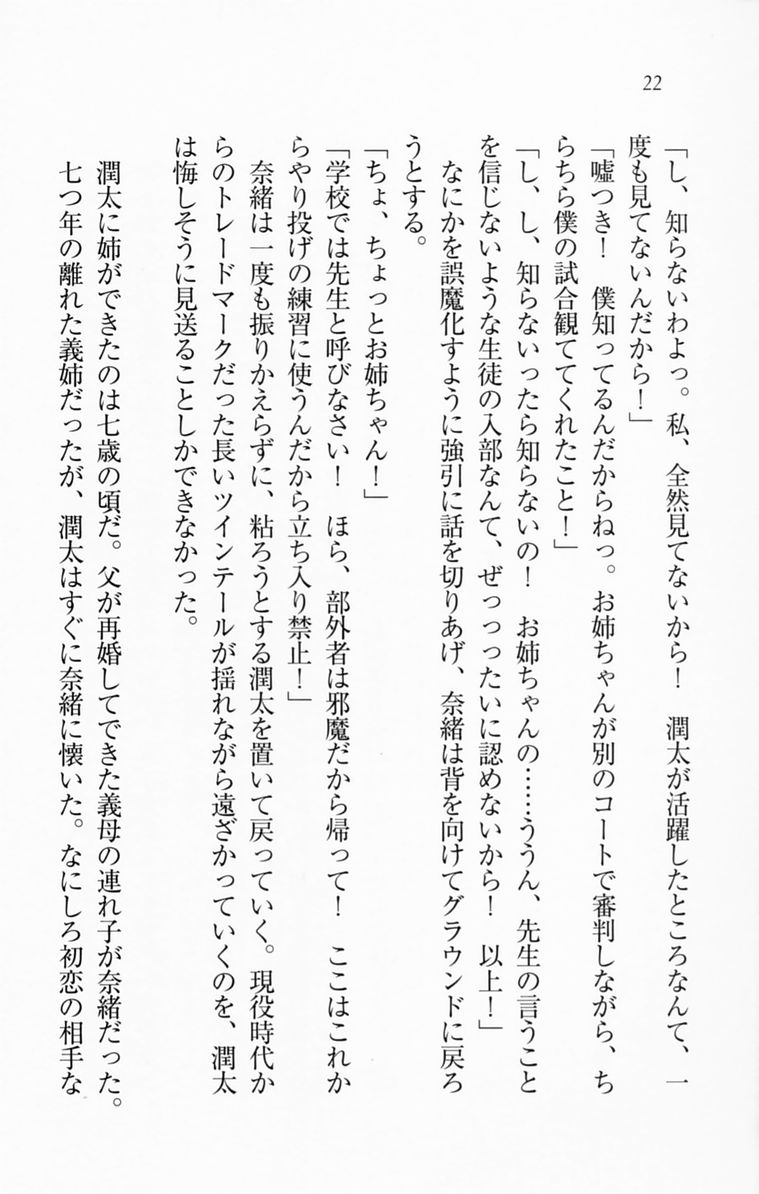 22
「し、知らないわよっ。私、全然見てないから！　潤太が活躍したところなんて、一
度も見てないんだから！」
「嘘つき！　僕知ってるんだからねっ。お姉ちゃんが別のコートで審判しながら、ち
らちら僕の試合観ててくれたこと！」
「し、し、知らないったら知らないの！　お姉ちゃんの……ううん、先生の言うこと
を信じないような生徒の入部なんて、ぜっっったいに認めないから！　以上！」
　なにかを誤魔化すように強引に話を切りあげ、奈緒は背を向けてグラウンドに戻ろ
うとする。
「ちょ、ちょっとお姉ちゃん！」
「学校では先生と呼びなさい！　ほら、部外者は邪魔だから帰って！　ここはこれか
らやり投げの練習に使うんだから立ち入り禁止！」
　奈緒は一度も振りかえらずに、粘ろうとする潤太を置いて戻っていく。現役時代か
らのトレードマークだった長いツインテールが揺れながら遠ざかっていくのを、潤太
は悔しそうに見送ることしかできなかった。
　潤太に姉ができたのは七歳の頃だ。父が再婚してできた義母の連れ子が奈緒だった。
　七つ年の離れた義姉だったが、潤太はすぐに奈緒に懐いた。なにしろ初恋の相手な